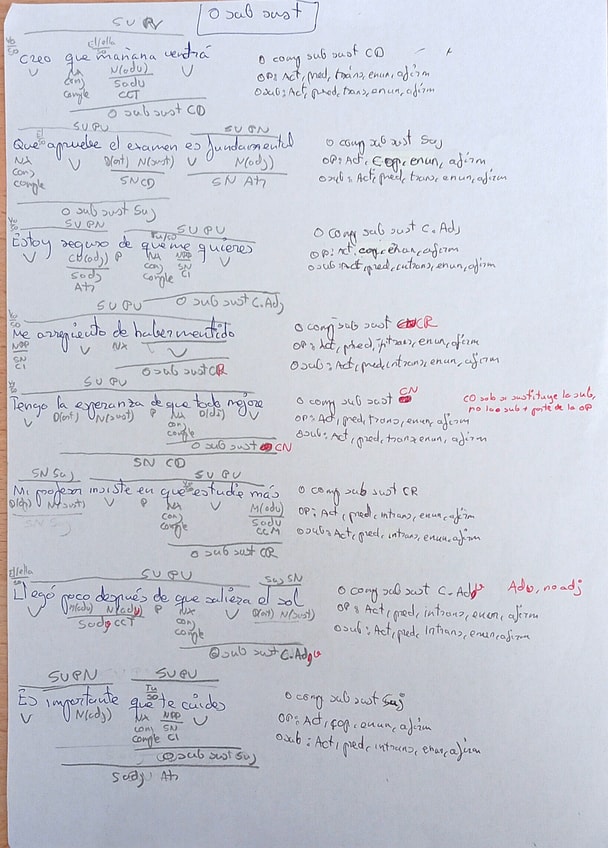 O sub sust
SV PV
él/ella
Yo
SO
Creo que mañana vendrá
O comp sub sust CD
V NX N(adv) V
OP: Act, pred, trans, enun, afirm
conj Sadv
comple CCT
Osub: Act, pred, trans, enun, afirm
O sub sust CD
SV PV SV PN
Que apruebe el examen es fundamental
O comp sub sust Suj
NX V D(art) N(sust) V N(adj)
OP: Act, cop, enun, afirm
conj SN CD SN Atr
comple
Osub: Act, pred, trans, enun, afirm
O sub sust Suj
SV PN Tú/SO SV PV
Yo
SO
Estoy seguro de que me quieres
O comp sub sust C.Adj
V N(adj) P NX NPP V
OP: Act, cop, enun, afirm
Sadj conj SN
Atr comple CI
Osub: Act, pred, intrans, enun, afirm
O sub sust C.Adj
SV PV
Yo
SO
Me arrepiento de haber mentido
O comp sub sust CR
NPP V NX V
OP: Act, pred, intrans, enun, afirm
SN
CI
Osub: Act, pred, intrans, enun, afirm
O sub sust CR
SV PV
Yo
SO
Tengo la esperanza de que todo mejore
O comp sub sust CN
V D(art) N(sust) P NX V
OP: Act, pred, trans, enun, afirm
conj
comple
Osub: Act, pred, trans, enun, afirm
O sub sust CN
SN CD
SN Suj SV PV
Mi profesor insiste en que estudie más
O comp sub sust CR
N(sust) V P NX V N(adv)
OP: Act, pred, intrans, enun, afirm
conj Sadv
comple CCM
Osub: Act, pred, intrans, enun, afirm
O sub sust CR
él/ella
SO
SV PV Suj SN
Llegó poco después de que saliera el sol
O comp sub sust C.Adv Adv, no adj
V N(adv) N(adv) P NX V D(art) N(sust)
OP: Act, pred, intrans, enun, afirm
Sadv CCT conj
comple
Osub: Act, pred, intrans, enun, afirm
O sub sust C.Adv
SV PN SV PV
Tú
SO
Es importante que te cuides
O comp sub sust Suj
V N(adj) NX NPP V
OP: Act, cop, enun, afirm
conj SN
comple CI
Osub: Act, pred, intrans, enun, afirm
O sub sust Suj
Sadj Atr